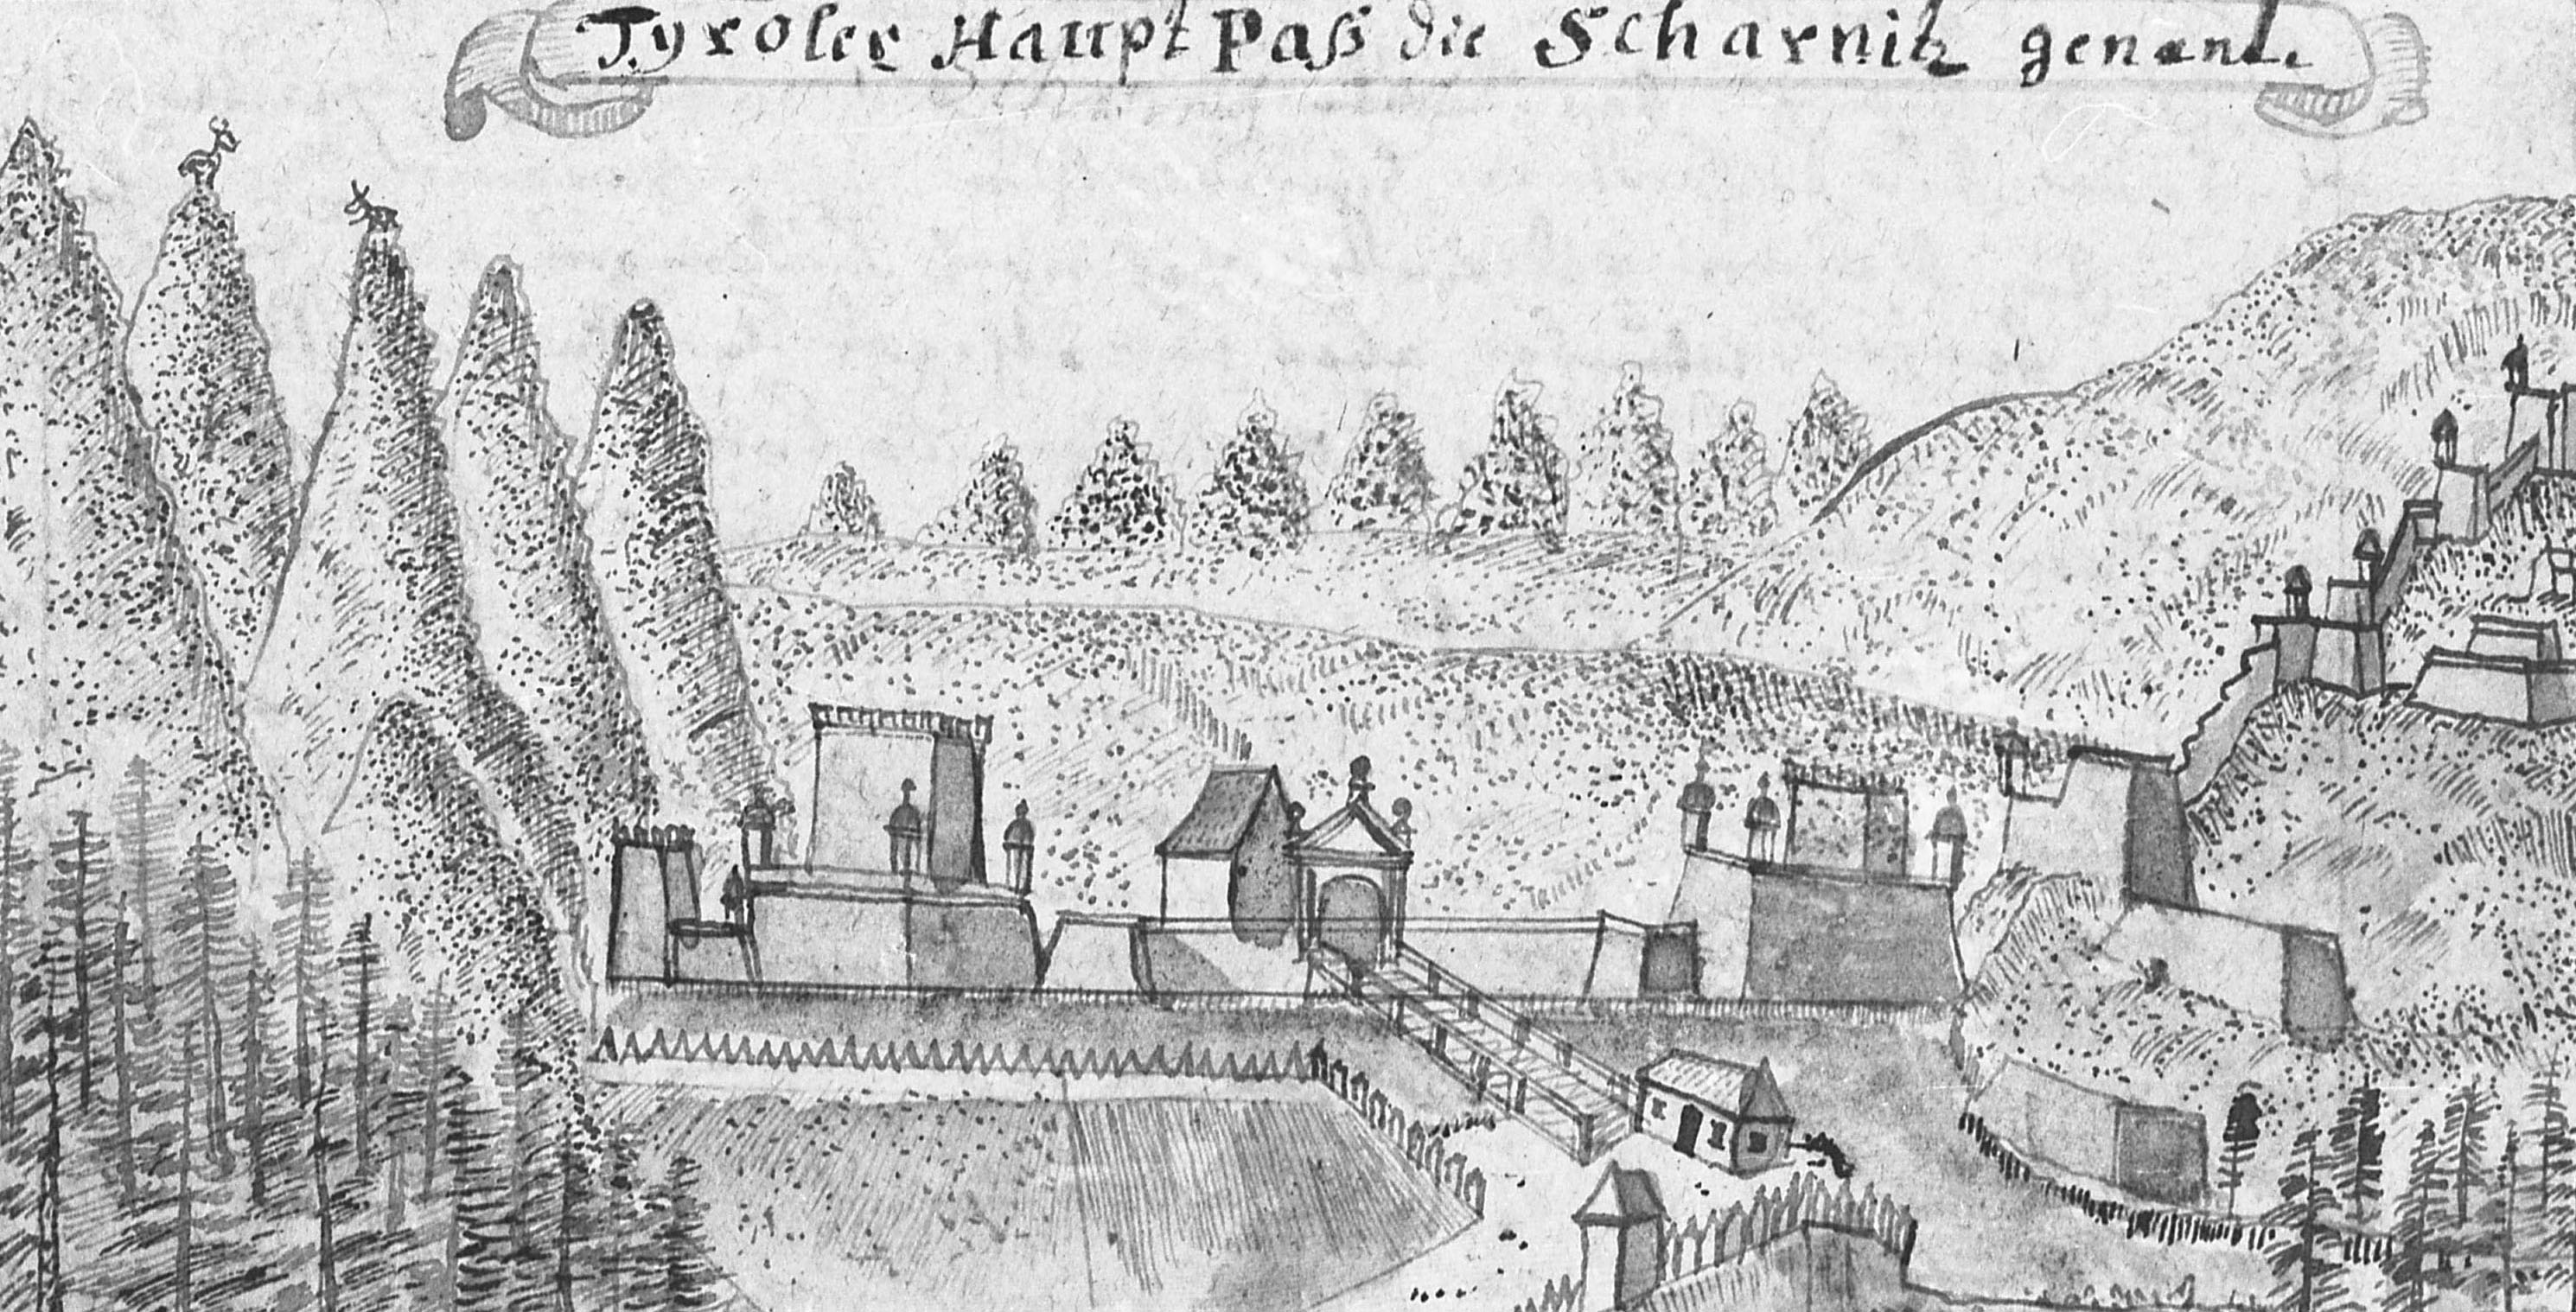 Tyroler Haupt Paß die Scharnitz genant.